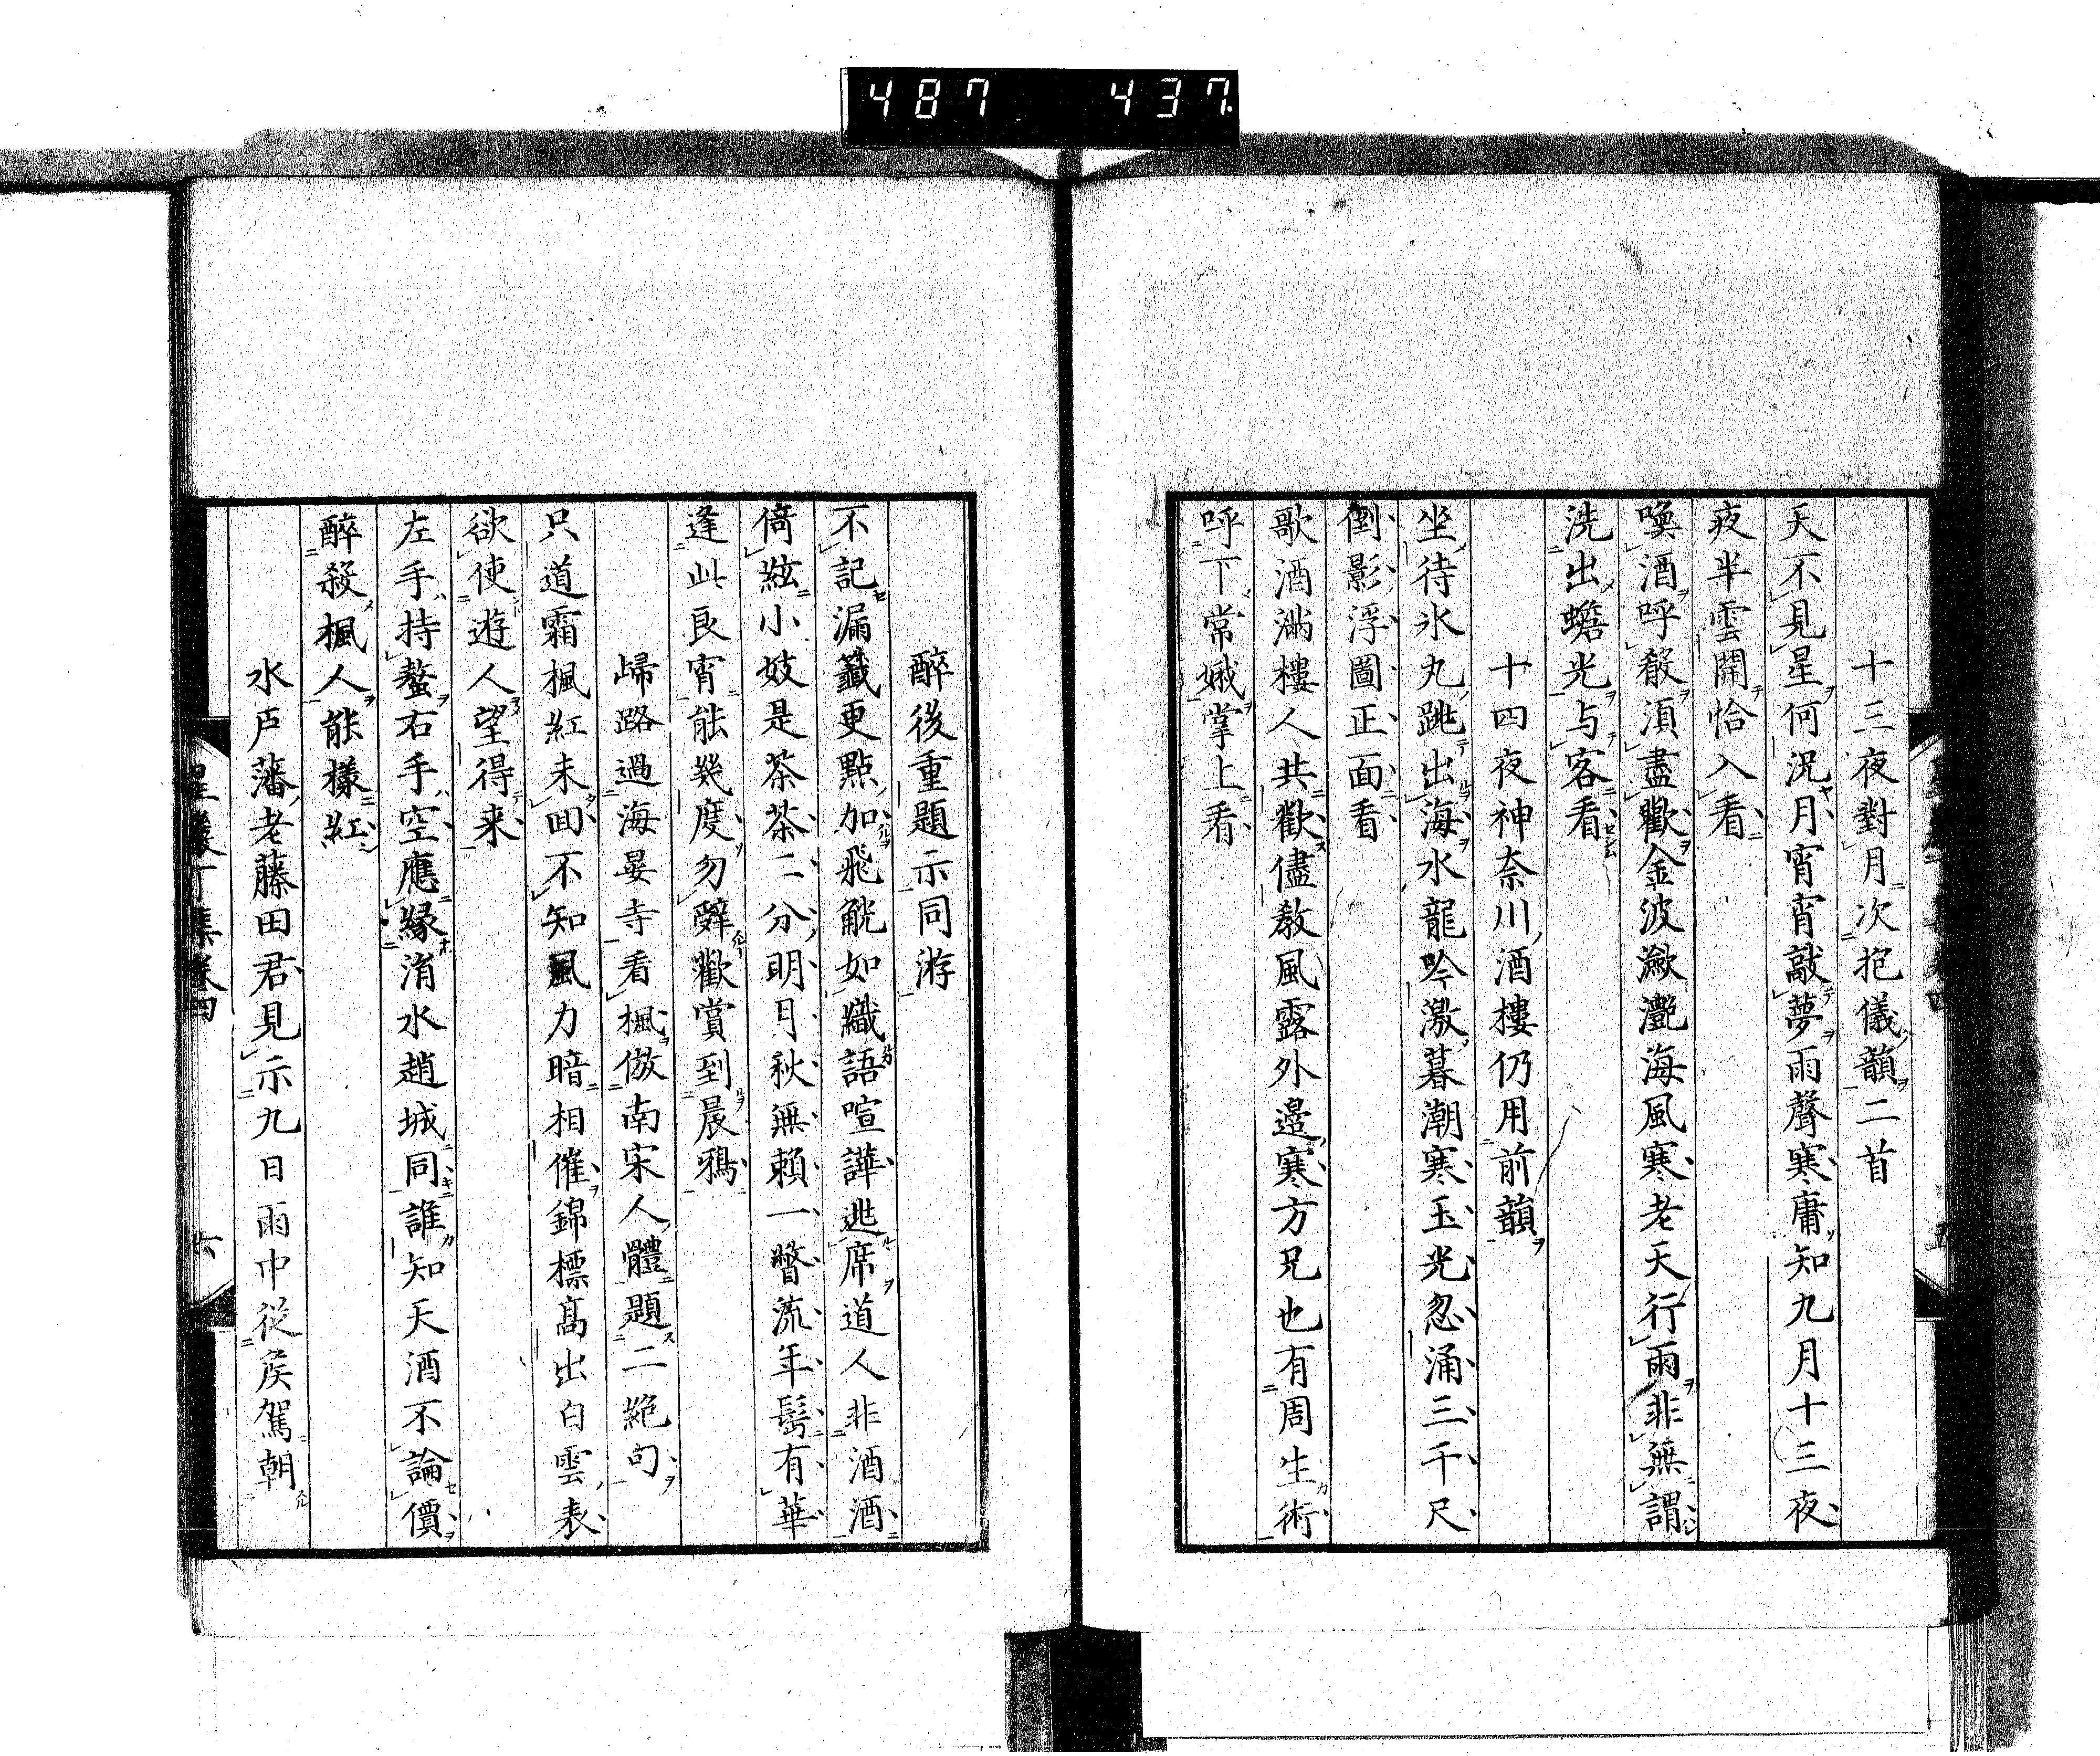 487 437
十三夜對月次抱儀韻二首
天不見星何況月宵宵敲夢雨聲寒庸知九月十三夜
夜半雲開恰入看
喚酒呼殽須盡歡金波瀲灔海風寒老天行雨非無謂
洗出蟾光与客看
十四夜神奈川酒樓仍用前韻
坐待氷丸跳出海水龍吟激暮潮寒玉光忽涌三千尺
倒影浮圖正面看
歌酒滿樓人共歡儘教風露外邊寒方兄也有周生術
呼下常娥掌上看
醉後重題示同游
不記漏籤更點加飛觥如織語喧譁逃席道人非酒酒
倚絃小妓是茶茶二分明月秋無賴一瞥流年髩有華
逢此良宵能幾度勿辭歡賞到晨鴉
歸路過海晏寺看楓倣南宋人體題二絶句
只道霜楓紅未回不知風力暗相催錦標髙出白雲表
欲使遊人望得来
左手持螯右手空應緣消水趙城同誰知天酒不論價
醉殺楓人能樣紅
水戸藩老藤田君見示九日雨中從矦駕朝
星巖丁集卷四 六